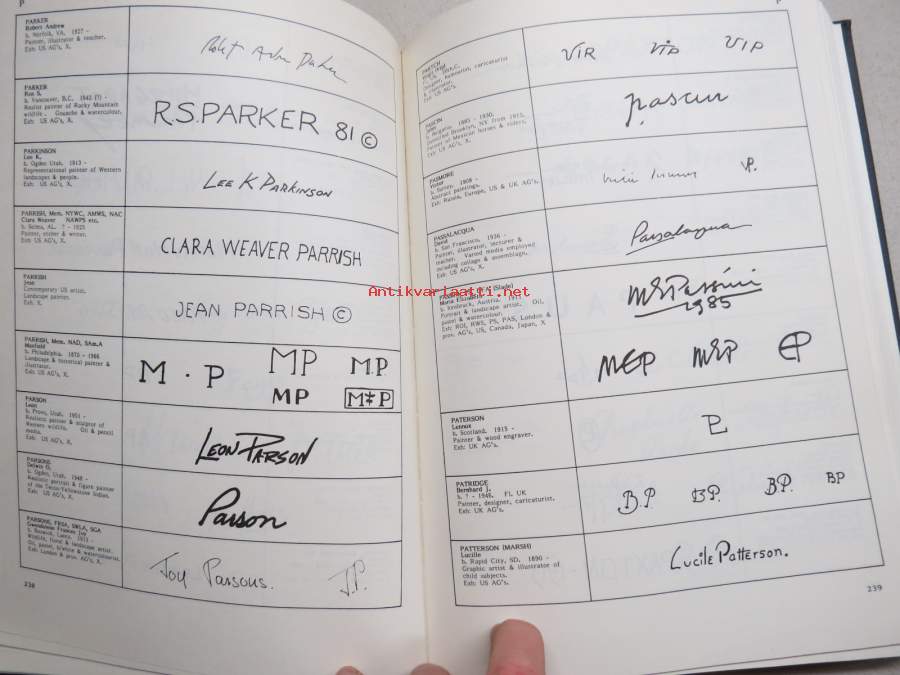 P
PARKER
Robert Andrew
b. Norfolk, VA. 1927 -
Painter, illustrator & teacher.
Exh: US AG's, X.
PARKER
Ron S.
b. Vancouver, B.C. 1942 (?) -
Realist painter of Rocky Mountain
wildlife. Gouache & watercolour.
Exh: US AG's, X.
R.S.PARKER 81 ©
PARKINSON
Lee K.
b. Ogden Utah. 1913 -
Representational painter of Western
landscapes & people.
Exh: US AG's, X.
LEE K PARKINSON
PARRISH, Mem. NYWC, AMWS, NAC
Clara Weaver NAWPS etc.
b. Selma, AL. ? - 1925
Painter, etcher & writer.
Exh: US AG's, X.
CLARA WEAVER PARRISH
PARRISH
Jean
Contemporary US artist.
Landscape painter.
Exh. X.
JEAN PARRISH ©
PARRISH, Mem. NAD, SAm.A
Maxfield
b. Philadelphia. 1870 - 1966
Landscape & historical painter &
illustrator.
Exh: US AG's, X.
M . P MP M.P
MP M&P
PARSON
Leon
b. Provo, Utah. 1951 -
Realistic painter & sculptor of
Western wildlife. Oil & pencil
media.
Exh: US AG's, X.
LEON PARSON
PARSONS
b. Ogden, Utah. 1948 -
Realistic portrait & figure painter
of the Teton-Yellowstone Indian.
Exh: US AG's, X.
Parson
PARSONS, FRSA, SWLA, SGA
Gwendolene Frances Joy
Wildlife, floral & landscape artist.
Exh: London & prov. AG's, X.
Joy Parsons. J.P.
238
P
PARTCH
Virgil
Designer, humorist, caricaturist
& illustrator.
Exh: US AG's.
VIP VIP VIP
PASCIN
Jules
b. Bulgaria. 1885 - 1930.
Settled Brooklyn, NY from 1915.
Painter of Mexican horses & riders.
Exh: US AG's, X.
pascin
PASMORE
Victor
b. Surrey. 1908 -
Abstract paintings.
Exh: Russia, Europe, US & UK AG's.
VP.
PASSALACQUA
David
b. San Francisco. 1936 -
Painter, illustrator, lecturer &
teacher. Varied media employed
including collage & assemblage.
Exh: US AG's, X.
Passalacqua
(Slade)
b. Innsbruck, Austria.
Portrait & landscape artist. Oil,
pastel & watercolour.
Exh: ROI, RWS, PS, PAS, London &
prov. AG's, US, Canada, Japan, X
1985
MEP MEP EP
PATERSON
Lennox
b. Scotland. 1915 -
Painter & wood engraver.
Exh: UK AG's.
P
PATRIDGE
Bernhard J.
b. ? - 1945. Fl. UK
Painter, designer, caricaturist.
Exh: UK AG's.
B.P B.P. B.P. BP
PATTERSON (MARSH)
Lucille
b. Rapid City, SD. 1890 -
Graphic artist & illustrator of
child subjects.
Exh: US AG's.
Lucile Patterson.
239
Antikvariaatti.net